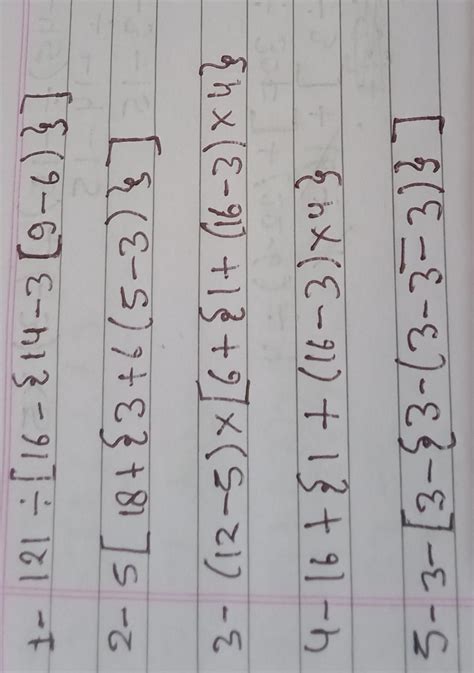 1- 121 ÷ [16 - {14 - 3 [9 - 6) }]
2- 5 [ 18 + {3 + 6 (5 - 3) } ]
3- (12 - 5) × [6 + {1 + (16 - 3) × 4}
4- 16 + {1 + (16 - 3) × 4}
5- 3 - [3 - {3 - (3 - 3 -̅ 3) } ]